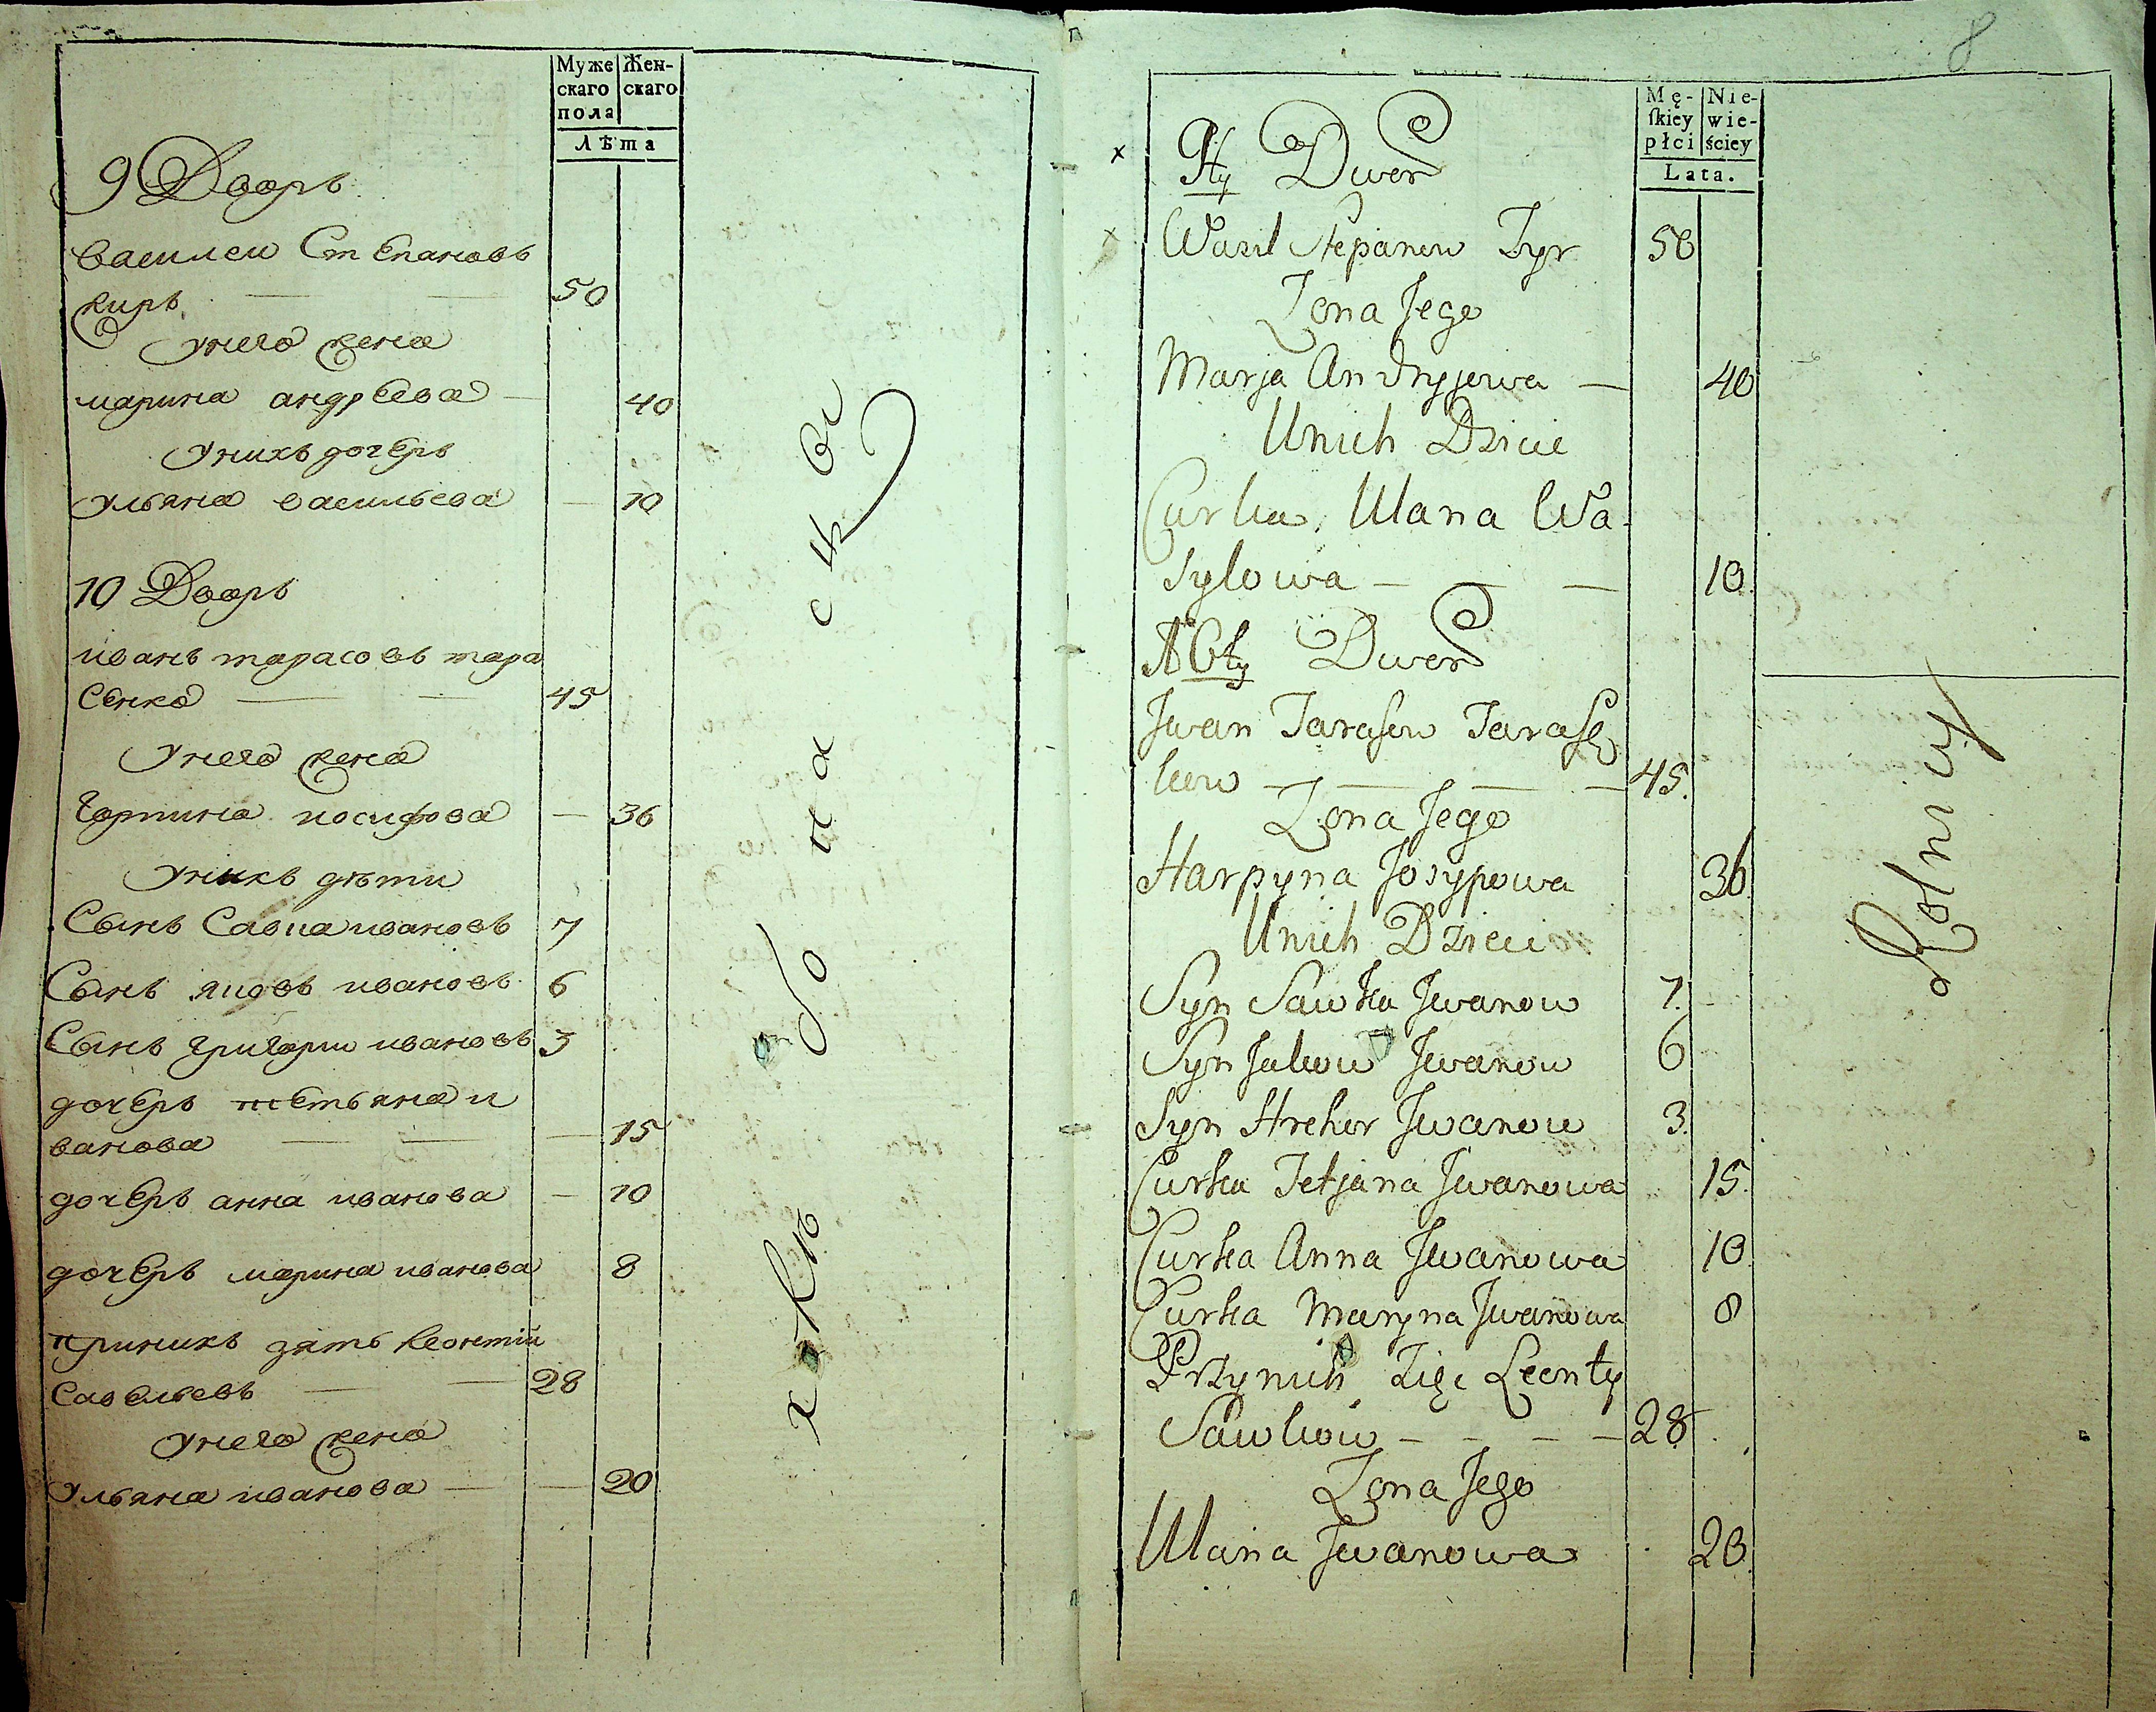 Муже
скаго
пола
Жен-
скаго
Лѣта
9 Дворъ
василеи Степановъ
жиръ 50
Унего жена
марина андреева 40
Унихъ дочеръ
ульяна васильева 10
10 Дворъ
иванъ тарасовъ тара
сенко 45
Унего жена
Гарпина иосифова 36
Унихъ дѣти
Сынъ Савка ивановъ 7
Сынъ яковъ ивановъ 6
Сынъ григории ивановъ 3
дочеръ тетьяна и
ванова 15
дочеръ анна иванова 10
дочеръ марина иванова 8
принихъ зять леонтіи
Савельевъ 28
Унего жена
Ульяна иванова 20
8
Mę-
ſkiey
płci
Nie-
wie-
ściey
Lata.
9ty Dwor
Wasil Stepanow Zyr 50
Zona Jego
Marja Andryjowa 40
Unich Dzieci
Curka Ulana Wa-
sylowa 10
10ty Dwor
Jwan Tarasow Tarasę
kow 45.
Zona Jego
Harpyna Josypowa 36
Unich Dzieci
Syn Sawka Jwanow 7
Syn Jakow Jwanow 6
Syn Hrehor Jwanow 3
Curka Tetjana Jwanowa 15
Curka Anna Jwanowa 10
Curka Maryna Jwanowa 8
Przynich Zięc Leonty
Sawkow 28
Zona Jego
Ulana Jwanowa 20
Rolnicy